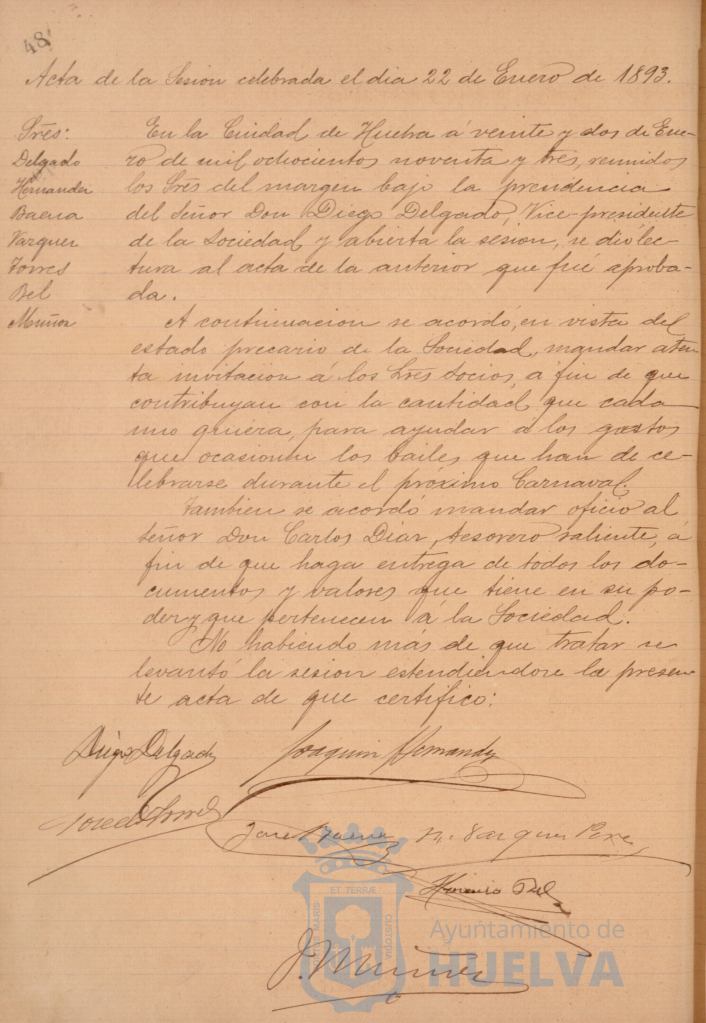 48
Acta de la Sesion celebrada el dia 22 de Enero de 1893.
Sres:
Delgado
Hernandez
Baena
Vazquez
Torres
Bel
Muñoz
En la Ciudad de Huelva á veinte y dos de Ene-
ro de mil ochocientos noventa y tres, reunidos
los Sres del margen bajo la presidencia
del Señor Don Diego Delgado, Vice-presidente
de la Sociedad y abierta la sesion, se dió lec-
tura al acta de la anterior que fué aproba-
da.
A continuacion se acordó, en vista del
estado precario de la Sociedad, mandar aten
ta invitacion á los Sres Socios, a fin de que
contribuyan con la cantidad que cada
uno quiera, para ayudar a los gastos
que ocasionen los bailes que han de ce-
lebrarse durante el próximo Carnaval.
Tambien se acordó mandar oficio al
señor Don Carlos Diaz, tesorero saliente, á
fin de que haga entrega de todos los do-
cumentos y valores que tiene en su po-
der y que pertenecen á la Sociedad.
No habiendo más de que tratar se
levantó la sesion estendiendose la presen-
te acta de que certifico:
Diego Delgado
Joaquin Hernandez
Jose de Torres
Jose Baena
M. Vazquez Perez
Bel
J. Muñoz
ET TERRÆ
PORTUS MARIS
CUSTODIA
Ayuntamiento de
HUELVA